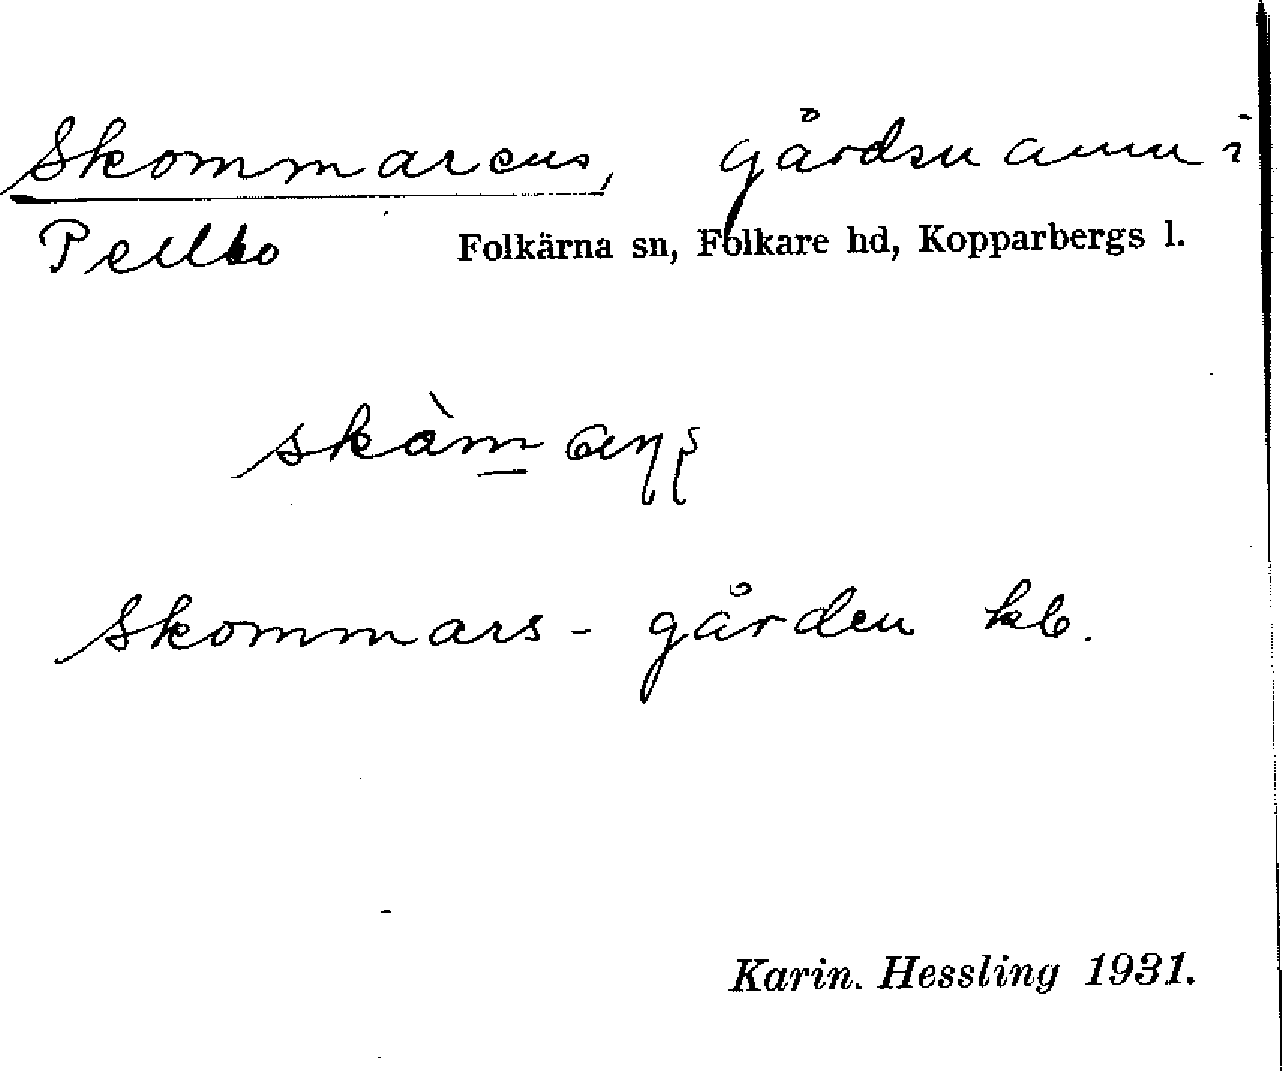 Skommarens, gårdsnamn i
Pellbo Folkärna sn, Folkare hd, Kopparbergs l.
Skommars-gården kb.
Karin. Hessling 1931.